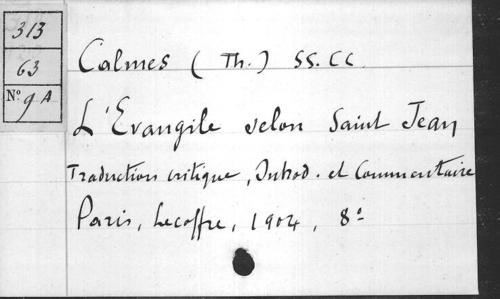 313
63
N° 9 A
Calmes (Th.) SS. CC.
L'Evangile selon Saint Jean
Traduction critique, Introd. et Commentaire
Paris, Lecoffre, 1904, 8°